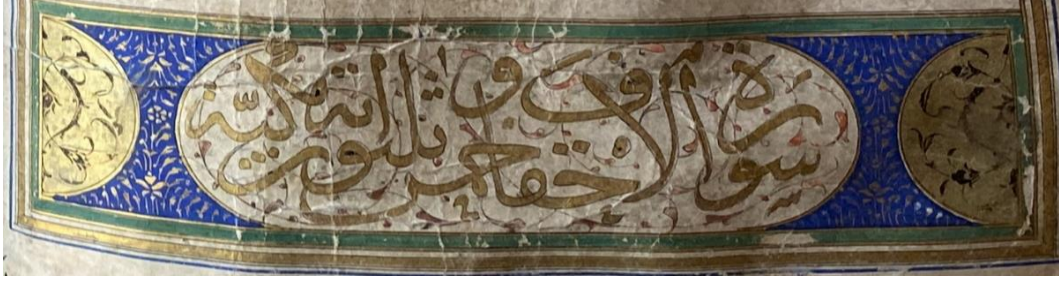 سورة الاحقاف خمس و ثلثون اية مكية